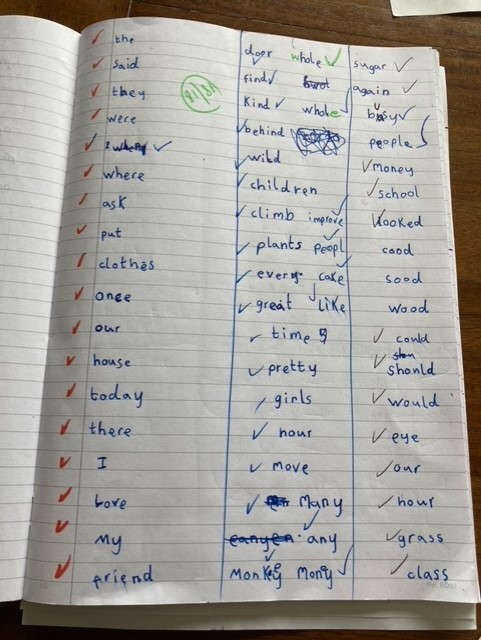 the
said
they
were
where
ask
put
clothes
once
our
house
today
there
I
Love
My
friend
18/18
door whole
find
Kind whole
behind
wild
children
climb improve
plants peopl
every cake
great Like
time
pretty
girls
hour
move
Many
any
Monkey Money
sugar
again
busy
people
money
school
looked
cood
sood
wood
could
should
would
eye
our
hour
grass
class